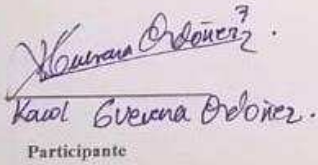 Guevara Ordóñez.
Karol Guevara Ordoñez.
Participante